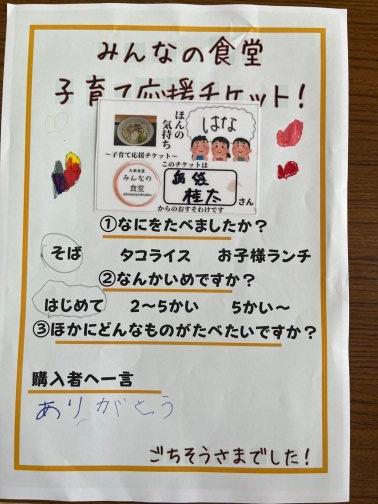 みんなの食堂
子育て応援チケット!
ほんの
気持ち
はな
～子育て応援チケット～
このチケットは
みんなの
食堂
島袋
桂太
さん
からのおすそわけです
①なにをたべましたか？
そば タコライス お子様ランチ
②なんかいめですか？
はじめて 2～5かい 5かい～
③ほかにどんなものがたべたいですか？
購入者へ一言
ありがとう
ごちそうさまでした!